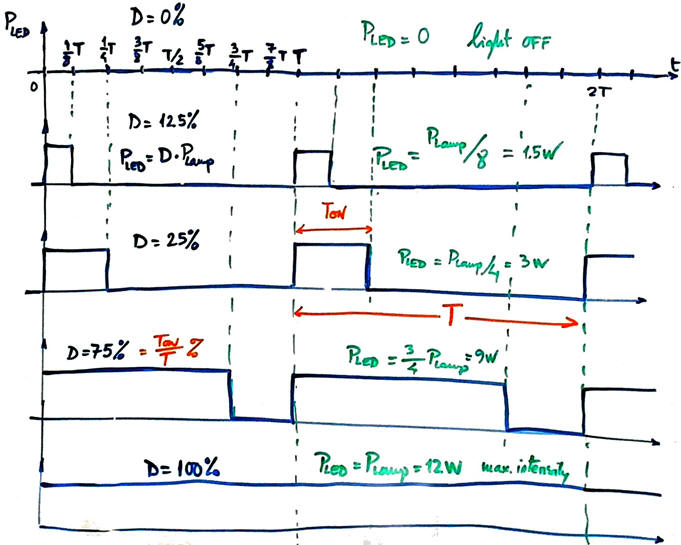 P_LED
D = 0%
P_LED = 0 light OFF
1/8 T 1/4 T 3/8 T T/2 5/8 T 3/4 T 7/8 T T
t
0
2T
D = 125%
P_LED = D · P_Lamp
P_LED = P_Lamp/8 = 1.5W
T_ON
D = 25%
P_LED = P_Lamp/4 = 3W
T
D = 75% = T_ON/T %
P_LED = 3/4 P_Lamp = 9W
D = 100%
P_LED = P_Lamp = 12W max. intensity